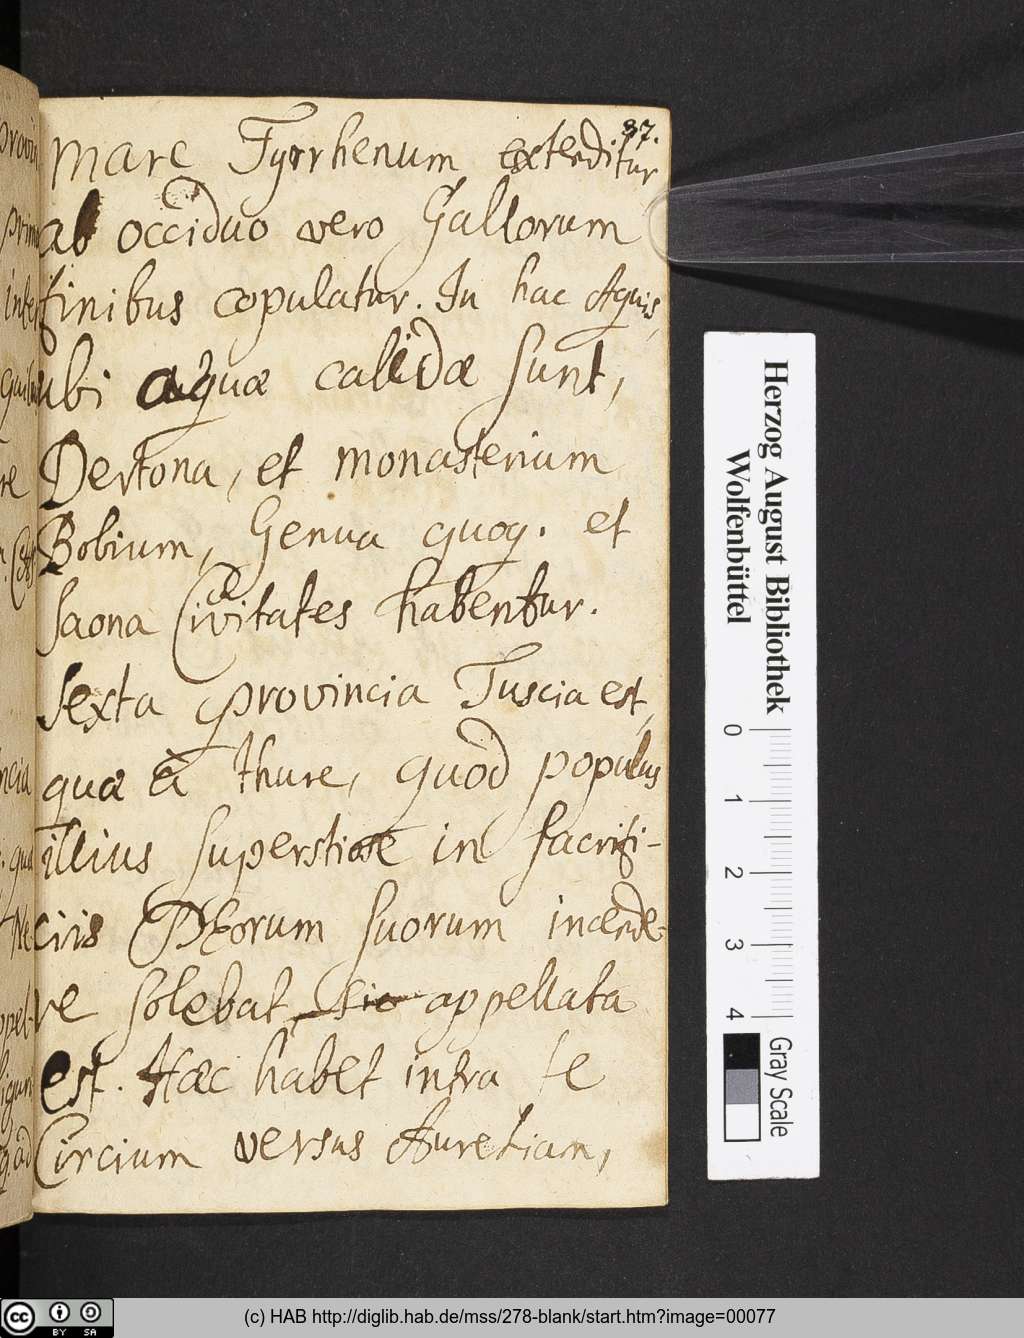 37.
mare Tyrrhenum extenditur
ab occiduo vero Gallorum
finibus copulatur. In hac Aquis,
ubi aquæ calidæ sunt,
Dertona, et monasterium
Bobium, Genua quoq. et
Saona Civitates habentur.
Sexta provincia Tuscia est,
quæ à thure, quod populus
illius superstiose in sacrifi-
ciis Deorum suorum incende-
re solebat, sic appellata
est. Hæc habet intra se
Circium versus Aureliam,
Herzog August Bibliothek
Wolfenbüttel
0 1 2 3 4
Gray Scale
(c) HAB http://diglib.hab.de/mss/278-blank/start.htm?image=00077
cc BY SA